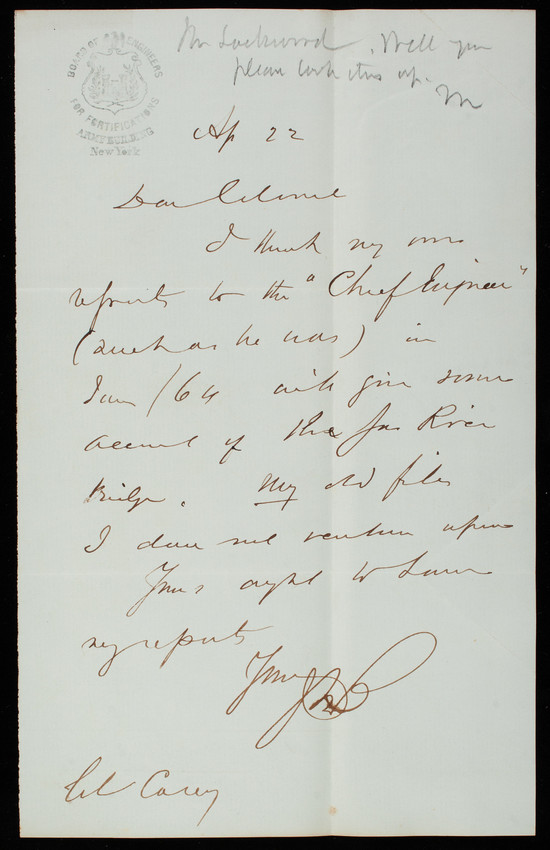 Mr Lockwood, Will you
please look this up.
BOARD OF ENGINEERS
FOR FORTIFICATIONS
ARMY BUILDING
New York
Ap 22
Dear Colonel
I think my own
reports to the "Chief Engineer"
(such as he was) in
Jan /64 will give some
account of the Jas River
Bridge. My old files
I dare not venture upon
Yours ought to have
my reports
Yours
Col Casey